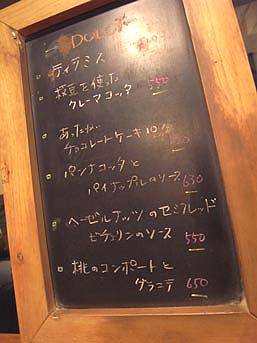 DOLCE
ティラミス
枝豆を使った
クレーマコッタ 550
あったかい
チョコレートケーキ
パンナコッタと
パイナップルのソース 630
ヘーゼルナッツのセミフレッド
ゼチュリンのソース 550
桃のコンポートと
グラニテ 650